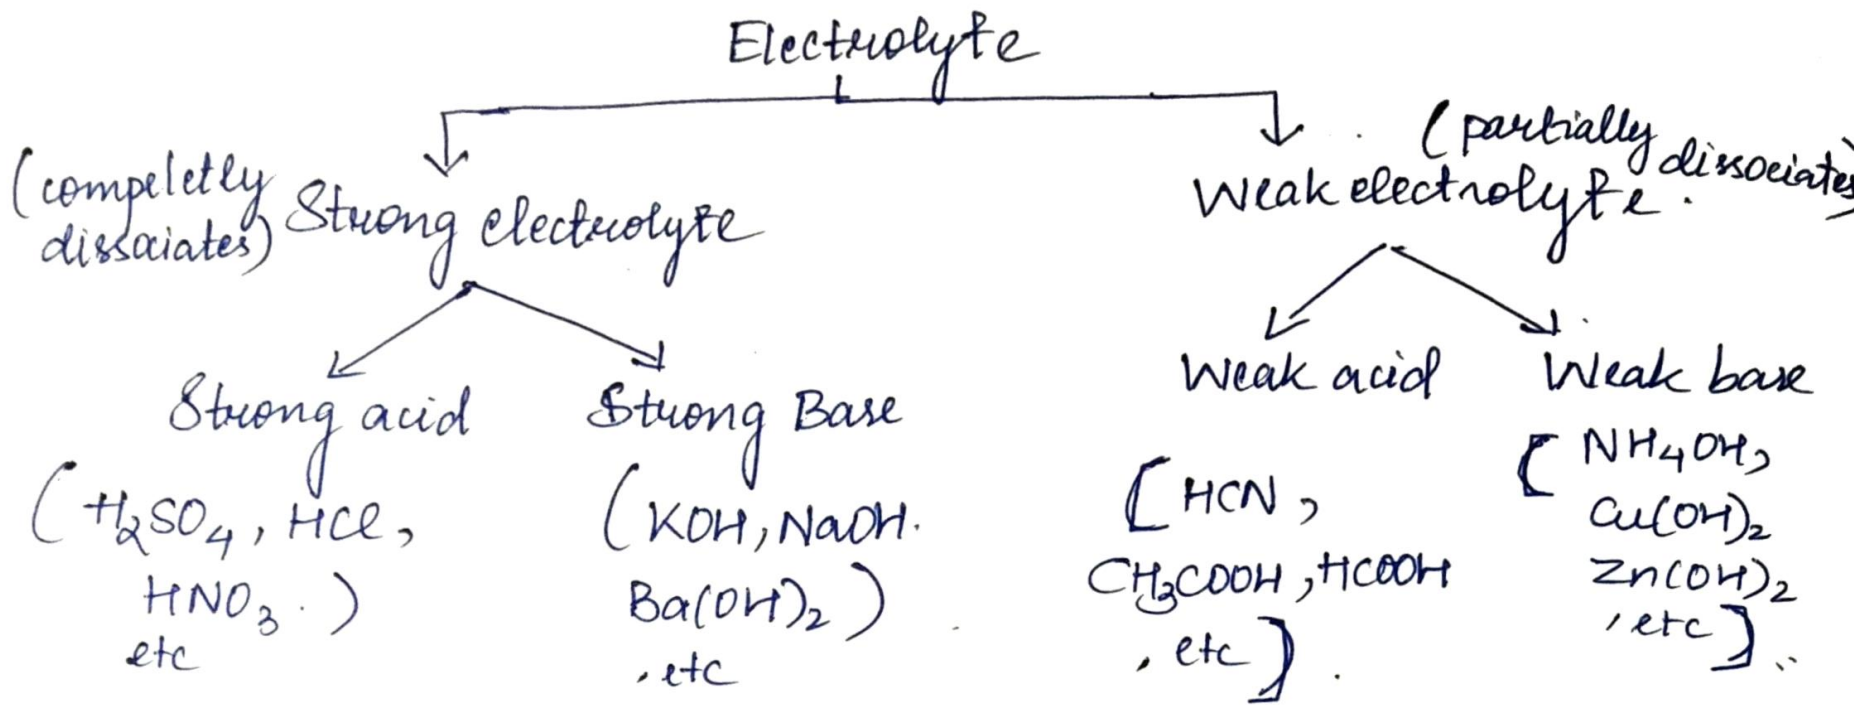 Electrolyte
(compeletly
dissociates)
Strong electrolyte
(partially dissociates)
Weak electrolyte.
Strong acid
(H₂SO₄, HCl,
HNO₃.)
etc
Strong Base
(KOH, NaOH.
Ba(OH)₂)
, etc
Weak acid
[HCN,
CH₃COOH, HCOOH
, etc]
Weak base
[NH₄OH,
Cu(OH)₂
Zn(OH)₂
, etc]